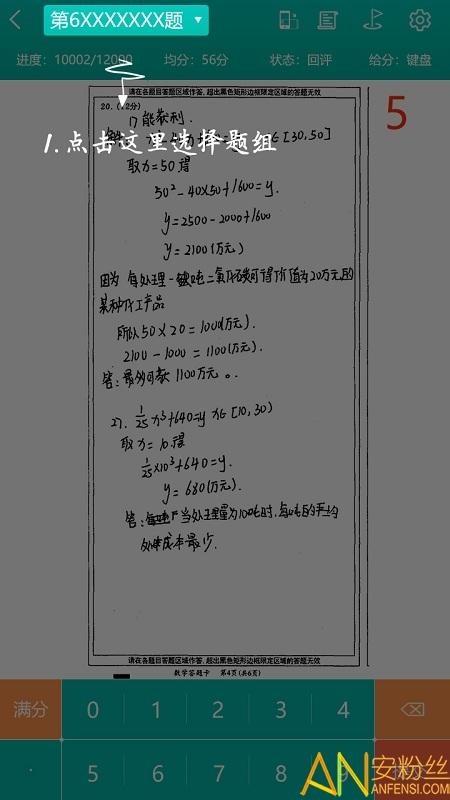 第6XXXXXXX题
进度：10002/12000 均分：56分 状态：回评 给分：键盘
请在各题目答题区域作答，超出黑色矩形边框限定区域的答题无效
20.(12分)
5
1.点击这里选择题组
能获利.
∈[30,50]
取x=50得
50²-40×50+1600=y.
y=2500-2000+1600
y=2100(万元)
因为 每处理一吨二氧化碳可得价值为20万元的
某种化工产品
所以50×20=1000(万元).
2100-1000=1100(万元).
答:最多可获1100万元。
27. 1/25 x³+640=y x∈[10,30)
取x=10得
1/25×10³+640=y.
y=680(万元).
答: 当处理量为100吨时,每吨的平均
处理成本最少.
请在各题目答题区域作答，超出黑色矩形边框限定区域的答题无效
数学答题卡 第4页(共6页)
满分 0 1 2 3 4
· 5 6 7 8 9
AN 安粉丝
ANFENSI.COM